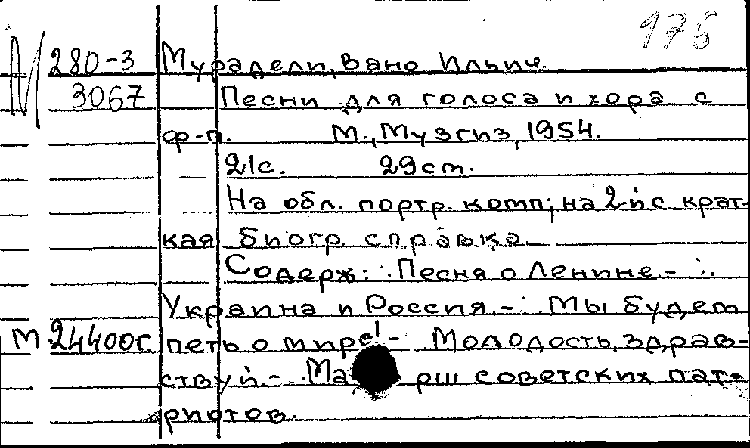 175
М 280-3 Мурадели, Вано Ильич.
3067 Песни для голоса и хора с
ф-п. М., Музгиз, 1954.
21с. 29 см.
На обл. портр. комп; на 2-й с крат-
кая биогр. справка.
Содерж: Песня о Ленине. -
Украина и Россия. - Мы будем
М 24400с петь о мире! - Молодость, здрав-
ствуй. - Марш советских пат-
риотов.